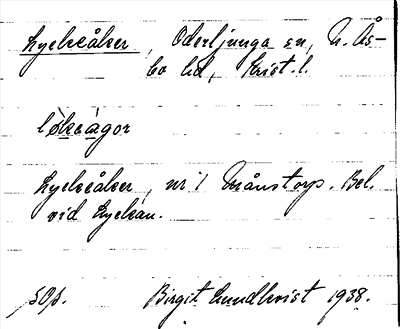 Lyckeåker, Oderljunga sn, N. Ås-
bo hd, Krist. l.
løkeågor
Lyckeåker, nr 1 Månstorp. Bel.
vid Lyckan.
sop. Birgit Lundkvist 1938.